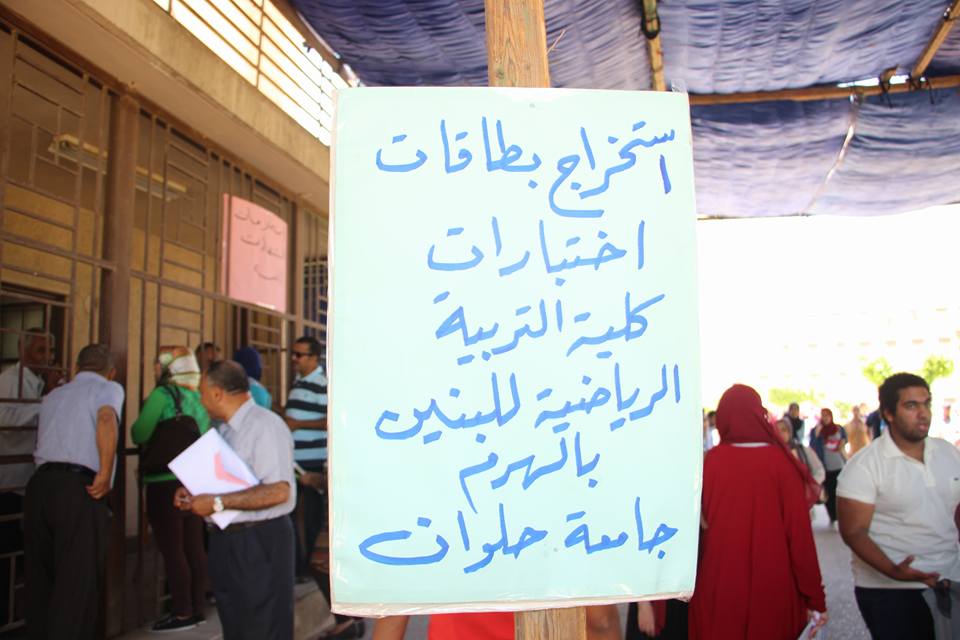 استخراج بطاقات
اختبارات
كلية التربية
الرياضية للبنين
بالهرم
جامعة حلوان